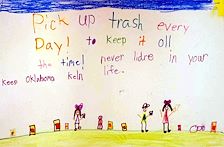 Pick up trash every
Day! to keep it all
the time! never lidre in your
keep Oklahoma keln life.